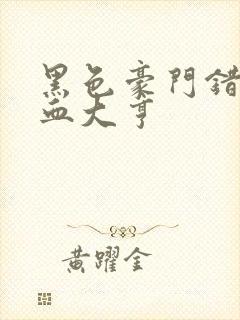 黑色豪門錯
血大亨
黃躍金